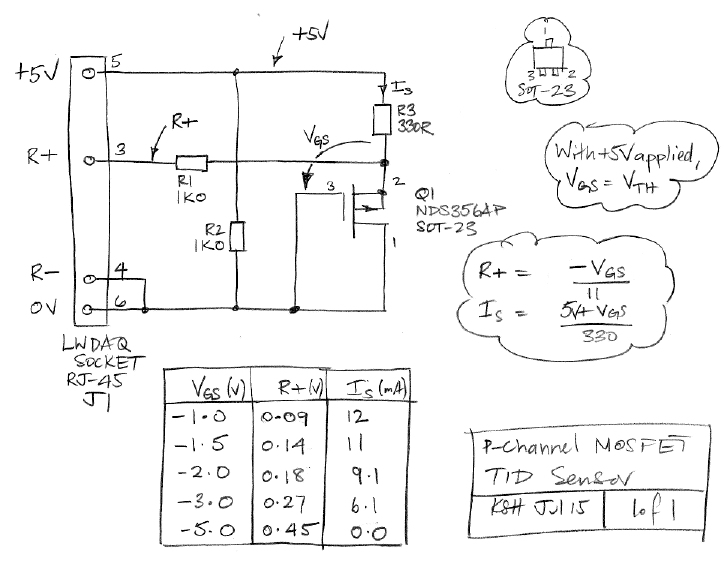 +5V
5
+5V
Is
R3
330R
1
3 2
SOT-23
R+
3
R+
R1
1K0
VGS
3
2
Q1
NDS356AP
SOT-23
1
With +5V applied,
VGS = VTH
R2
1K0
R-
4
0V
6
R+ = -VGS
11
Is = 5V+VGS
330
LWDAQ
SOCKET
RJ-45
J1
VGS (V) R+(V) Is (mA)
-1.0 0.09 12
-1.5 0.14 11
-2.0 0.18 9.1
-3.0 0.27 6.1
-5.0 0.45 0.0
P-Channel MOSFET
TID Sensor
KSH Jul 15 1 of 1